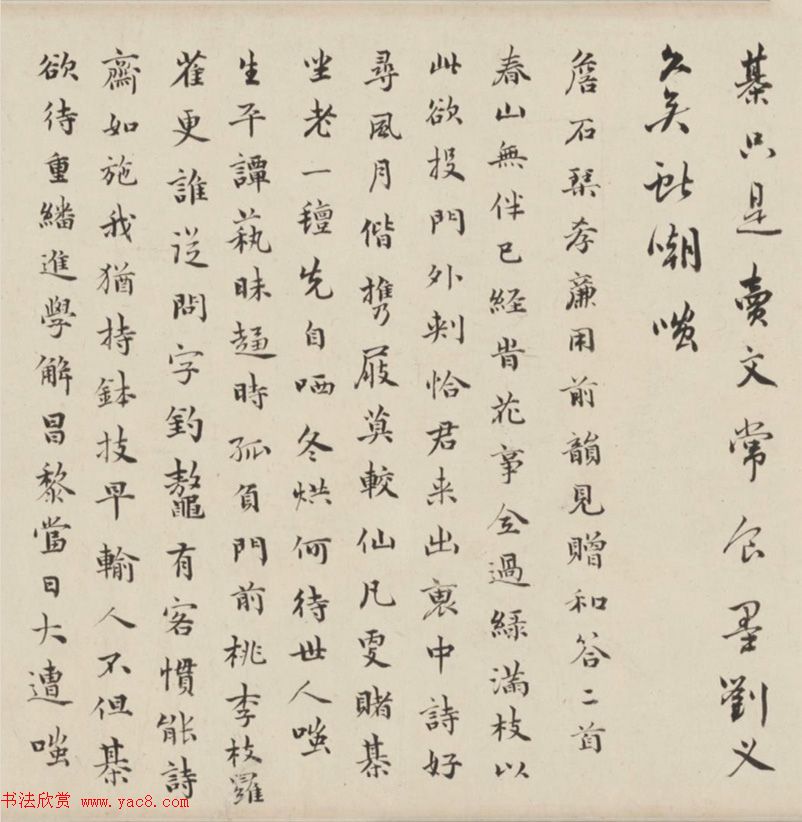 棊只是賣文常食墨劉义
久矣訨嘲嗤
詹石琹孝廉用前韻見贈和答二首
春山無伴已經旹花事全過綠滿枝以
此欲投門外刺恰君来出裏中詩好
尋風月偕携屐莫較仙凡更賭棊
坐老一氊先自哂冬烘何待世人嗤
生平譚蓺昧趨時孤負門前桃李枝羅
雀更誰從問字釣鼇有客慣能詩
齋如施我猶持鉢技早輸人不但棊
欲待重繙進學解昌黎當日大遭嗤
书法欣赏 www.yac8.com